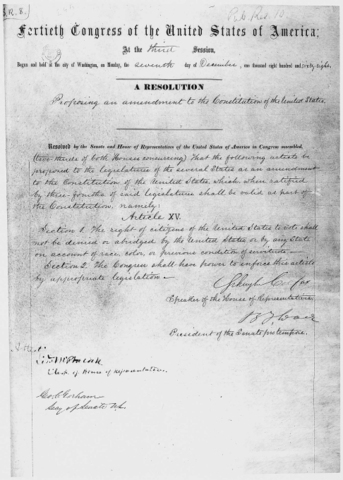 Fortieth Congress of the United States of America;
At the third Session,
Begun and held at the city of Washington, on Monday, the seventh day of December, one thousand eight hundred and sixty-eight.
A RESOLUTION
Proposing an amendment to the Constitution of the United States.
Resolved by the Senate and House of Representatives of the United States of America in Congress assembled,
(two-thirds of both Houses concurring) That the following article be
proposed to the legislatures of the several States as an amendment
to the Constitution of the United States, which, when ratified
by three-fourths of said legislatures shall be valid as part of
the Constitution, namely:
Article XV.
Section 1. The right of citizens of the United States to vote shall
not be denied or abridged by the United States or by any State
on account of race, color, or previous condition of servitude—
Section 2. The Congress shall have power to enforce this article
by appropriate legislation—
Schuyler Colfax
Speaker of the House of Representatives.
B F Wade
President of the Senate pro tempore.
Attest:
Clerk of House of Representatives.
Geo C Gorham
Secy of Senate U.S.